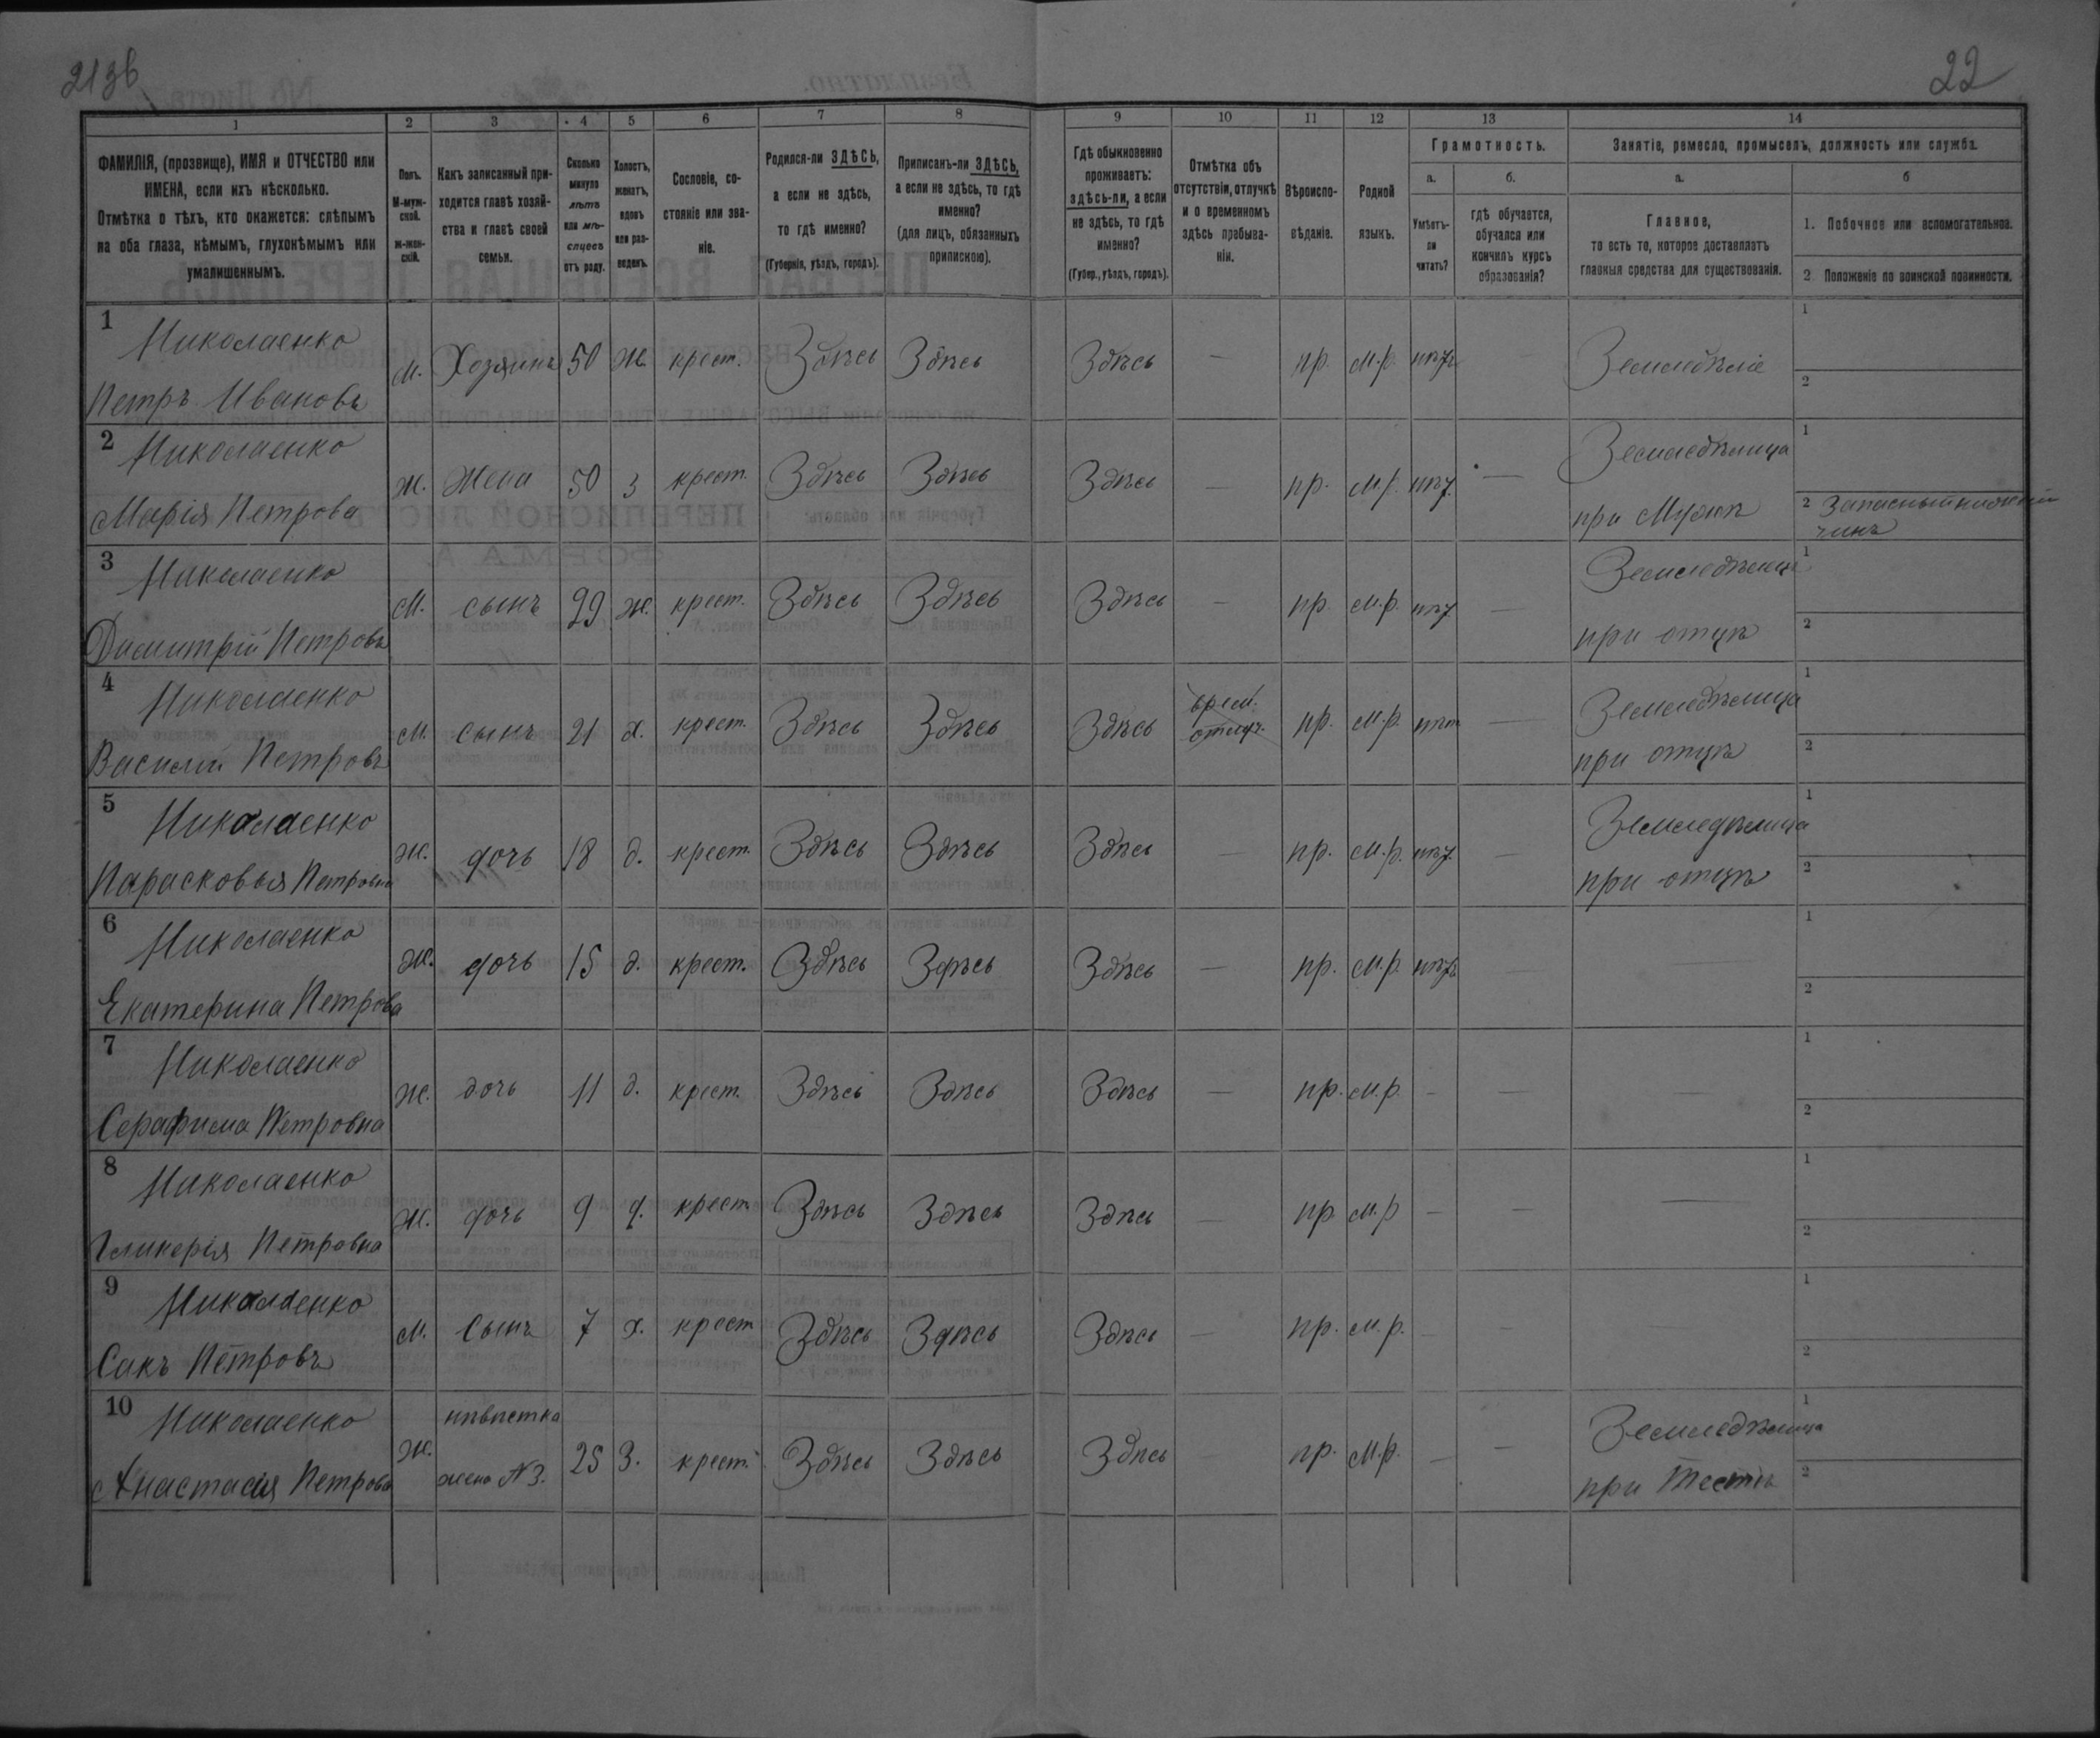 213б
22
1 2 3 4 5 6 7 8 9 10 11 12 13 14
ФАМИЛІЯ, (прозвище), ИМЯ и ОТЧЕСТВО или
ИМЕНА, если ихъ нѣсколько.
Отмѣтка о тѣхъ, кто окажется: слѣпымъ
на оба глаза, нѣмымъ, глухонѣмымъ или
умалишеннымъ.
Полъ.
М-муж-
ской.
ж-жен-
скій.
Какъ записанный при-
ходится главѣ хозяй-
ства и главѣ своей
семьи.
Сколько
минуло
лѣтъ
или мѣ-
сяцевъ
отъ роду.
Холостъ,
женатъ,
вдовъ
или раз-
веденъ.
Сословіе, со-
стояніе или зва-
ніе.
Родился-ли ЗДѢСЬ,
а если не здѣсь,
то гдѣ именно?
(Губернія, уѣздъ, городъ).
Приписанъ-ли ЗДѢСЬ,
а если не здѣсь, то гдѣ
именно?
(для лицъ, обязанныхъ
припискою).
Гдѣ обыкновенно
проживаетъ:
здѣсь-ли, а если
не здѣсь, то гдѣ
именно?
(Губер., уѣздъ, городъ).
Отмѣтка объ
отсутствіи, отлучкѣ
и о временномъ
здѣсь пребыва-
ніи.
Вѣроиспо-
вѣданіе.
Родной
языкъ.
Грамотность.
а.
Умѣетъ-
ли
читать?
б.
гдѣ обучается,
обучался или
кончилъ курсъ
образованія?
Занятіе, ремесло, промыселъ, должность или служба.
а.
Главное,
то есть то, которое доставляетъ
главныя средства для существованія.
б
1. Побочное или вспомогательное.
2. Положеніе по воинской повинности.
1 Николаенко
Петръ Ивановъ м. Хозяинъ 50 ж. крест. Здѣсь Здѣсь Здѣсь — пр. м.р. Земледѣліе 1 2
2 Николаенко
Марія Петрова ж. Жена 50 з крест. Здѣсь Здѣсь Здѣсь — пр. м.р. — Земледѣлица
при Мужѣ 1 2 Запасный нижній
чинъ
3 Николаенко
Димитрій Петровъ м. сынъ 29 ж. крест. Здѣсь Здѣсь Здѣсь — пр. м.р. — Земледѣлецъ
при отцѣ 1 2
4 Николаенко
Василій Петровъ м. сынъ 21 х. крест. Здѣсь Здѣсь Здѣсь врем.
отлуч. пр. м.р. нѣт — Земледѣлица
при отцѣ 1 2
5 Николаенко
Парасковья Петровна ж. дочь 18 д. крест. Здѣсь Здѣсь Здѣсь — пр. м.р. — Земледѣлица
при отцѣ 1 2
6 Николаенко
Екатерина Петрова ж. дочь 15 д. крест. Здѣсь Здѣсь Здѣсь — пр. м.р. — — 1 2
7 Николаенко
Серафима Петровна ж. дочь 11 д. крест. Здѣсь Здѣсь Здѣсь — пр. м.р. - — — 1 2
8 Николаенко
Гликерія Петровна ж. дочь 9 д. крест Здѣсь Здѣсь Здѣсь — пр м.р — — — 1 2
9 Николаенко
Сакъ Петровъ м. Сынъ 7 х. крест Здѣсь Здѣсь Здѣсь — пр. м.р. - - — 1 2
10 Николаенко
Анастасія Петрова ж. нѣвѣстка
жена №3. 25 З. крест. Здѣсь Здѣсь Здѣсь — пр. м.р. — — Земледѣлица
при Тестѣ 1 2